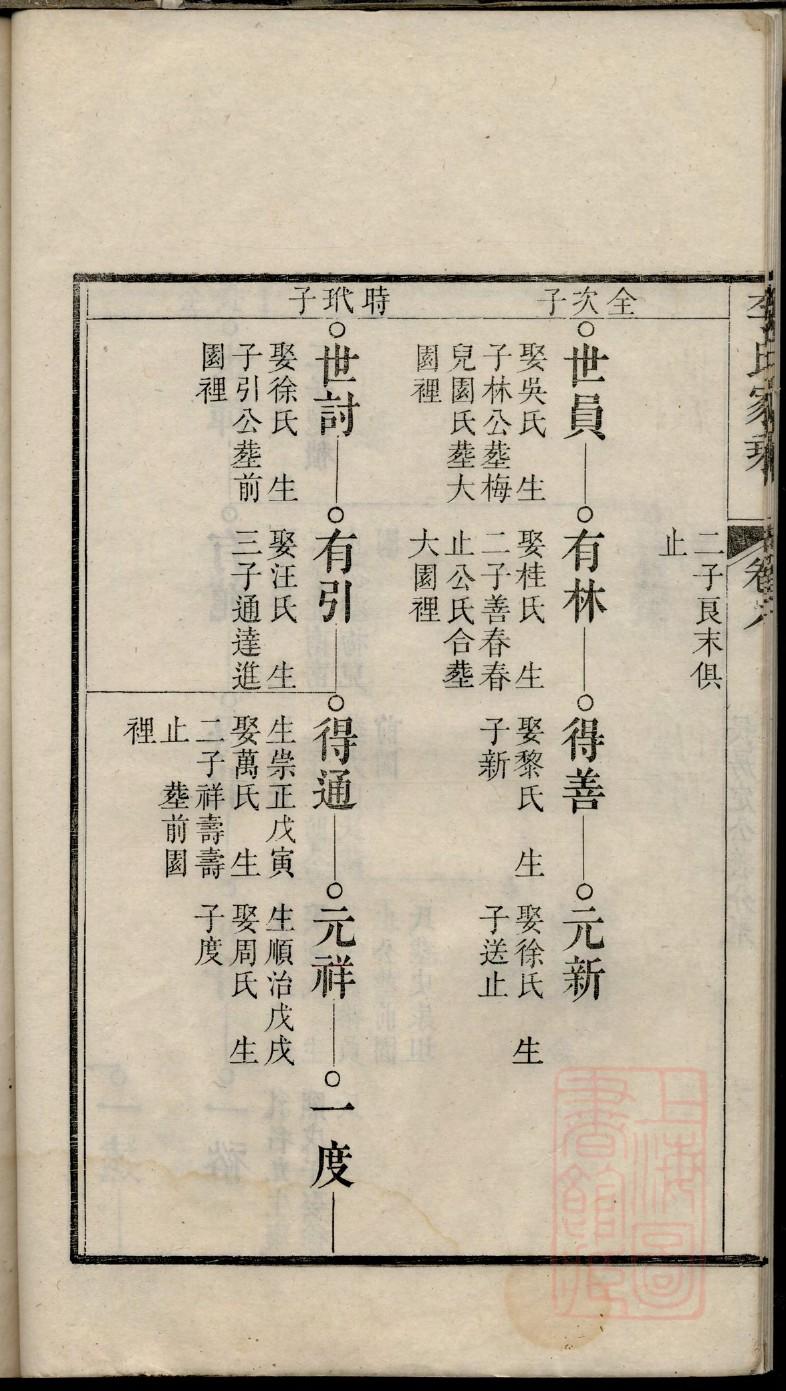 李氏家乘
卷六
二子良末俱
止
全次子
世員
娶吳氏 生
子林公𦵏梅
兒園氏𦵏大
園裡
有林
娶桂氏 生
二子善春春
止公氏合𦵏
大園裡
得善
娶黎氏 生
子新
元新
娶徐氏 生
子送止
時玳子
世討
娶徐氏 生
子引公𦵏前
園裡
有引
娶汪氏 生
三子通達進
得通
生崇正戊寅
娶萬氏 生
二子祥壽壽
止 𦵏前園
裡
元祥
生順治戊戌
娶周氏 生
子度
一度
上海圖
書館藏